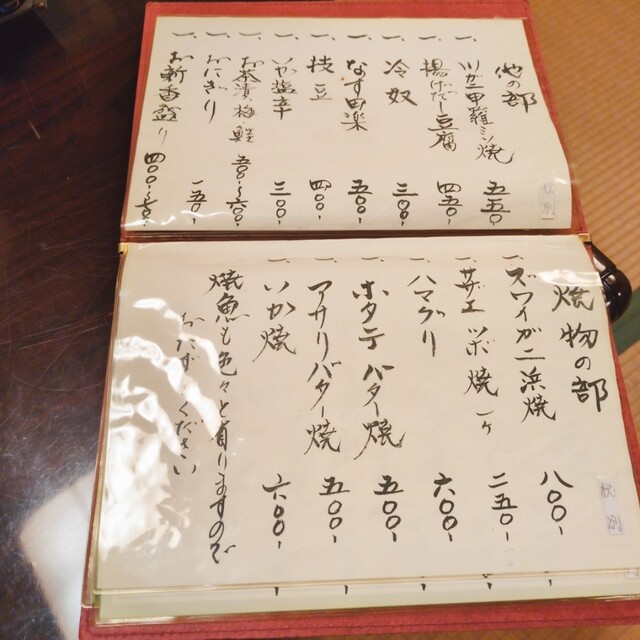 他の部
税別
一、川ガニ甲羅ミソ焼 五五〇-
一、揚げだし豆腐 四五〇-
一、冷奴 三〇〇-
一、なす田楽 五〇〇-
一、枝豆 四〇〇-
一、いか塩辛 三〇〇-
一、お茶漬 梅 鮭 五〇〇~六〇〇-
一、おにぎり 一五〇-
一、お新香盛り 四〇〇~
焼物の部
税別
一、ズワイガニ浜焼 八〇〇-
一、サザエツボ焼 一ケ 二五〇-
一、ハマグリ 六〇〇-
一、ホタテバター焼 五〇〇-
一、アサリバター焼 五〇〇-
一、いか焼 六〇〇-
焼魚も色々と有りますので
おたずねください